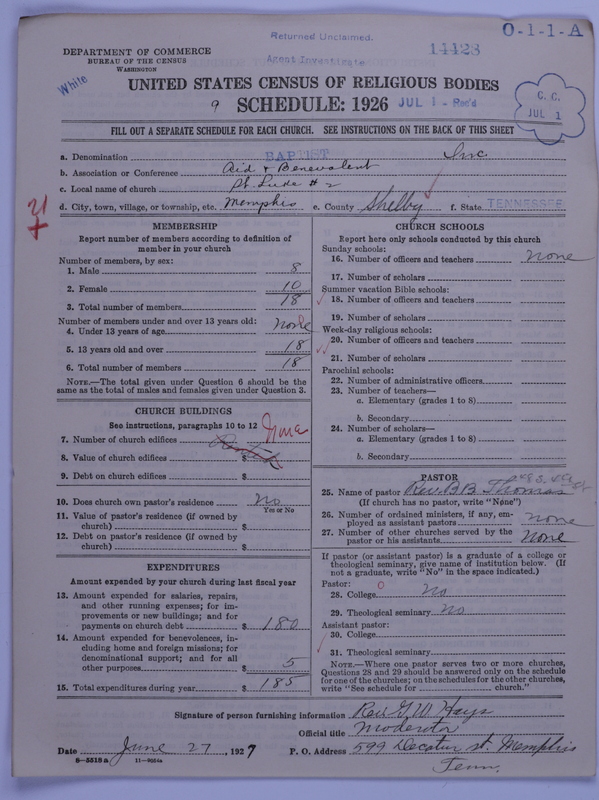 Returned Unclaimed.
14423
O-1-1-A
DEPARTMENT OF COMMERCE
BUREAU OF THE CENSUS
WASHINGTON
Agent Investigate
White
UNITED STATES CENSUS OF RELIGIOUS BODIES
9 SCHEDULE: 1926 JUL 1 - Rec'd
C. C.
JUL 1
FILL OUT A SEPARATE SCHEDULE FOR EACH CHURCH. SEE INSTRUCTIONS ON THE BACK OF THIS SHEET
a. Denomination BAPTIST Inc
b. Association or Conference Aid & Benevolent
c. Local name of church St. Luke # 2
d. City, town, village, or township, etc. Memphis e. County Shelby f. State TENNESSEE
MEMBERSHIP
Report number of members according to definition of
member in your church
Number of members, by sex:
1. Male 8
2. Female 10
3. Total number of members 18
Number of members under and over 13 years old:
4. Under 13 years of age none
5. 13 years old and over 18
6. Total number of members 18
NOTE.—The total given under Question 6 should be the
same as the total of males and females given under Question 3.
CHURCH BUILDINGS
See instructions, paragraphs 10 to 12
7. Number of church edifices none
8. Value of church edifices $
9. Debt on church edifices $
10. Does church own pastor's residence No
Yes or No
11. Value of pastor's residence (if owned by
church) $
12. Debt on pastor's residence (if owned by
church) $
EXPENDITURES
Amount expended by church during last fiscal year
13. Amount expended for salaries, repairs,
and other running expenses; for im-
provements or new buildings; and for
payments on church debt $ 180
14. Amount expended for benevolences, in-
cluding home and foreign missions; for
denominational support; and for all
other purposes $ 5
15. Total expenditures during year $ 185
CHURCH SCHOOLS
Report here only schools conducted by this church
Sunday schools:
16. Number of officers and teachers none
17. Number of scholars
Summer vacation Bible schools:
18. Number of officers and teachers
19. Number of scholars
Week-day religious schools:
20. Number of officers and teachers
21. Number of scholars
Parochial schools:
22. Number of administrative officers
23. Number of teachers—
a. Elementary (grades 1 to 8)
b. Secondary
24. Number of scholars—
a. Elementary (grades 1 to 8)
b. Secondary
PASTOR
25. Name of pastor Rev. B B Thomas
(If church has no pastor, write "None")
26. Number of ordained ministers, if any, em-
ployed as assistant pastors none
27. Number of other churches served by the
pastor or his assistants None
If pastor (or assistant pastor) is a graduate of a college or
theological seminary, give name of institution below. (If
not a graduate, write "No" in the space indicated.)
Pastor:
28. College No
29. Theological seminary No
Assistant pastor:
30. College
31. Theological seminary
NOTE.—Where one pastor serves two or more churches,
Questions 28 and 29 should be answered only on the schedule
for one of the churches; on the schedules for the other churches,
write "See schedule for church."
Signature of person furnishing information Rev. G. W. Hays
Official title Moderator
Date June 27, 1927 P. O. Address 599 Decatur st. Memphis
Tenn.
8—5518 a 11—9034a